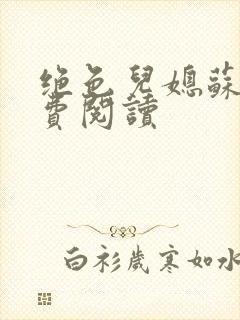 绝色兒媳蘇
費閱讀
白衫歲寒如水